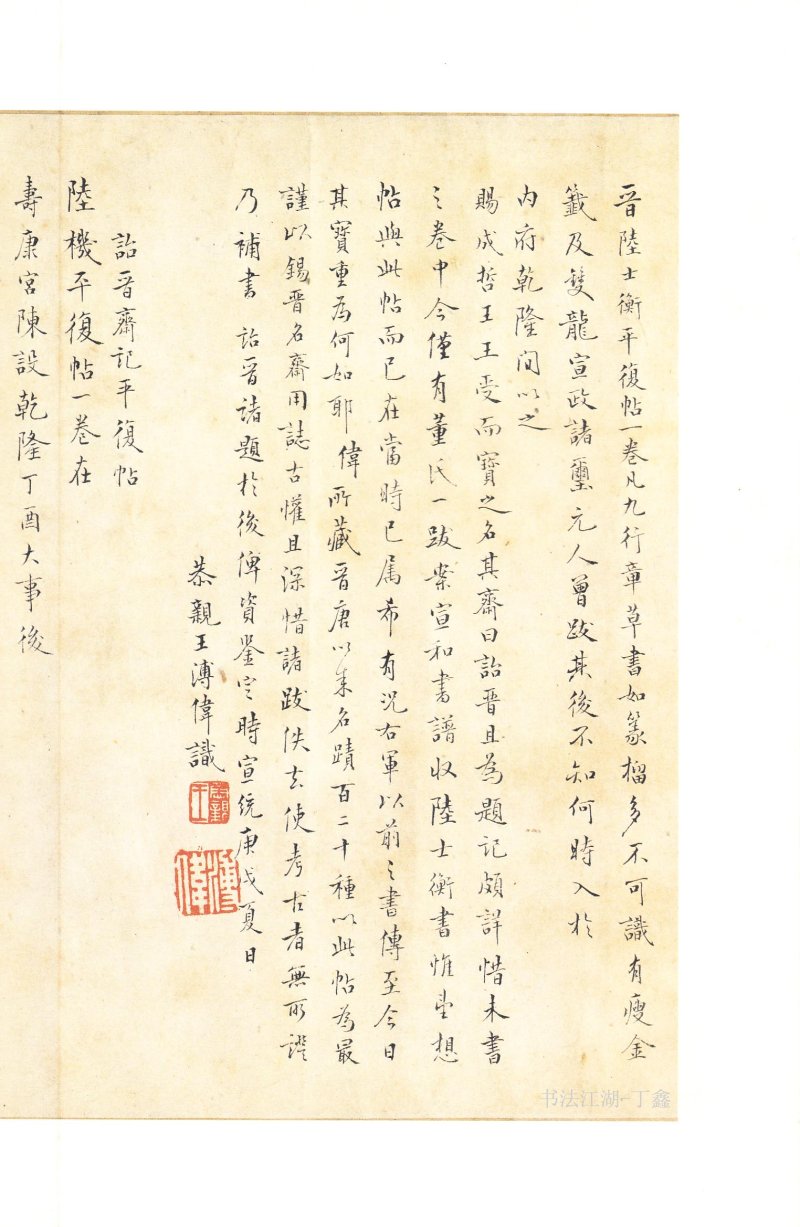 晉陸士衡平復帖一卷凡九行章草書如篆籀多不可識有瘦金
籤及雙龍宣政諸璽元人曾跋其後不知何時入於
内府乾隆間以之
賜成哲王王受而寶之名其齋曰詒晉且為題記頗詳惜未書
之卷中今僅有董氏一跋案宣和書譜收陸士衡書惟望想
帖與此帖而已在當時已属希有況右軍以前之書傳至今日
其寶重為何如耶偉所藏晉唐以來名蹟百二十種以此帖為最
謹以錫晉名齋用誌古懽且深惜諸跋佚去使考古者無所證
乃補書詒晉諸題於後俾資鑒定時宣統庚戌夏日
恭親王溥偉識
恭親王
溥偉
詒晉齋記平復帖
陸機平復帖一卷在
壽康宮陳設乾隆丁酉大事後
书法江湖-丁鑫